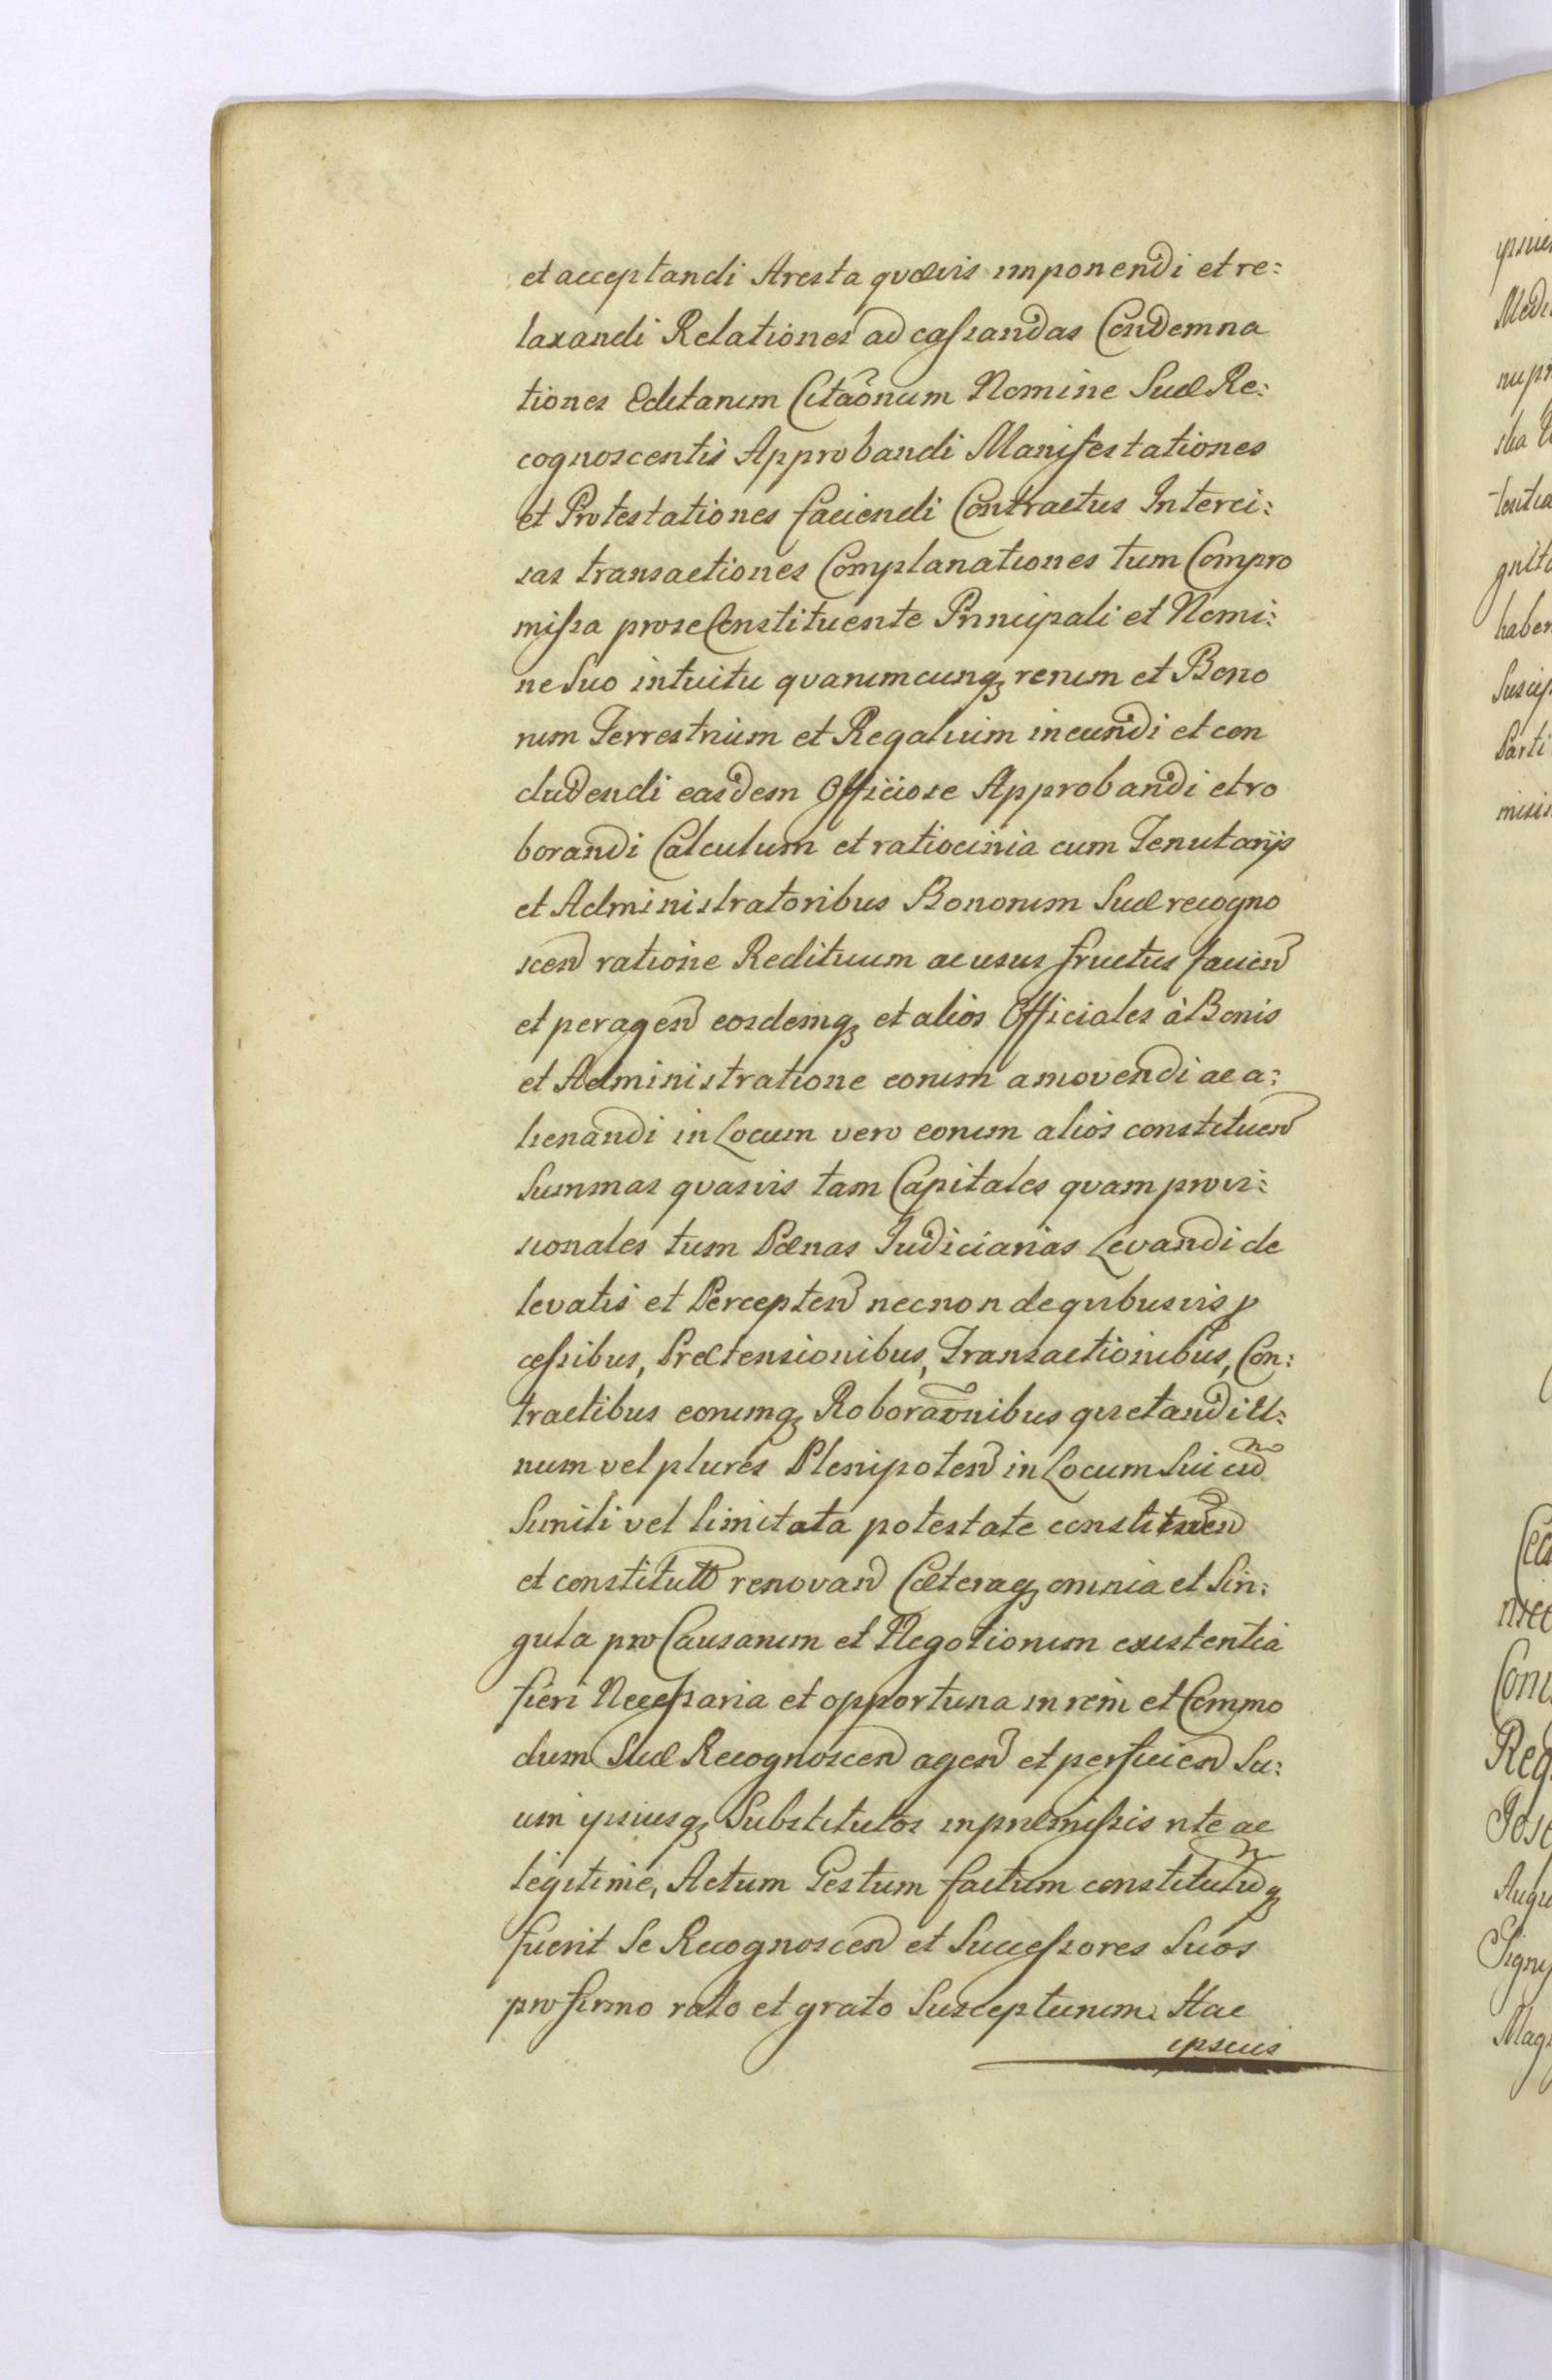 et acceptandi Aresta quævis imponendi et re:
laxandi Relationes ad cassandas Condemna
tiones Editarum Citaōnum Nomine Suæ Re:
cognoscentis Approbandi Manifestationes
et Protestationes faciendi Contractus Interci:
sas transactiones Complanationes tum Compro
missa pro se Constituente Principali et Nomi:
ne Suo intuitu quarumcunq; rerum et Bono
rum Terrestrium et Regalium ineundi et con
cludendi easdem Officiose Approbandi et ro
borandi Calculum et ratiocinia cum Tenutarijs
et Administratoribus Bonorum Suæ recogno
scen̄ ratione Redituum ac usus fructus facien̄
et peragen̄ eosdemq; et alios Officiales à Bonis
et Administratione eorum amovendi ac a:
lienandi in Locum vero eorum alios constituen̄
Summas quasvis tam Capitales quam provi:
sionales tum Pænas Judiciarias Levandi de
levatis et Percepten̄ necnon de quibusvis p
cessibus, Prætensionibus, Transactionibus, Con:
tractibus eorumq; Roboraōnibus quietandi U:
num vel plures Plenipoten̄ in Locum Sui cū
Simili vel limitata potestate constituen̄
et constitutō renovan̄ Cæteraq; omnia et Sin:
gula pro Causarum et Negotiorum existentia
fieri Necessaria et opportuna in rem et Commo
dum Suæ Recognoscen̄ agen̄ et perficien̄ Su:
um ipsiusq; Substitutos in præmissis rite ac
legitime, Actum Gestum factum constitutūq;
fuerit Se Recognoscen̄ et Successores Suos
pro firmo rato et grato Suscepturum. Hac
ipsius